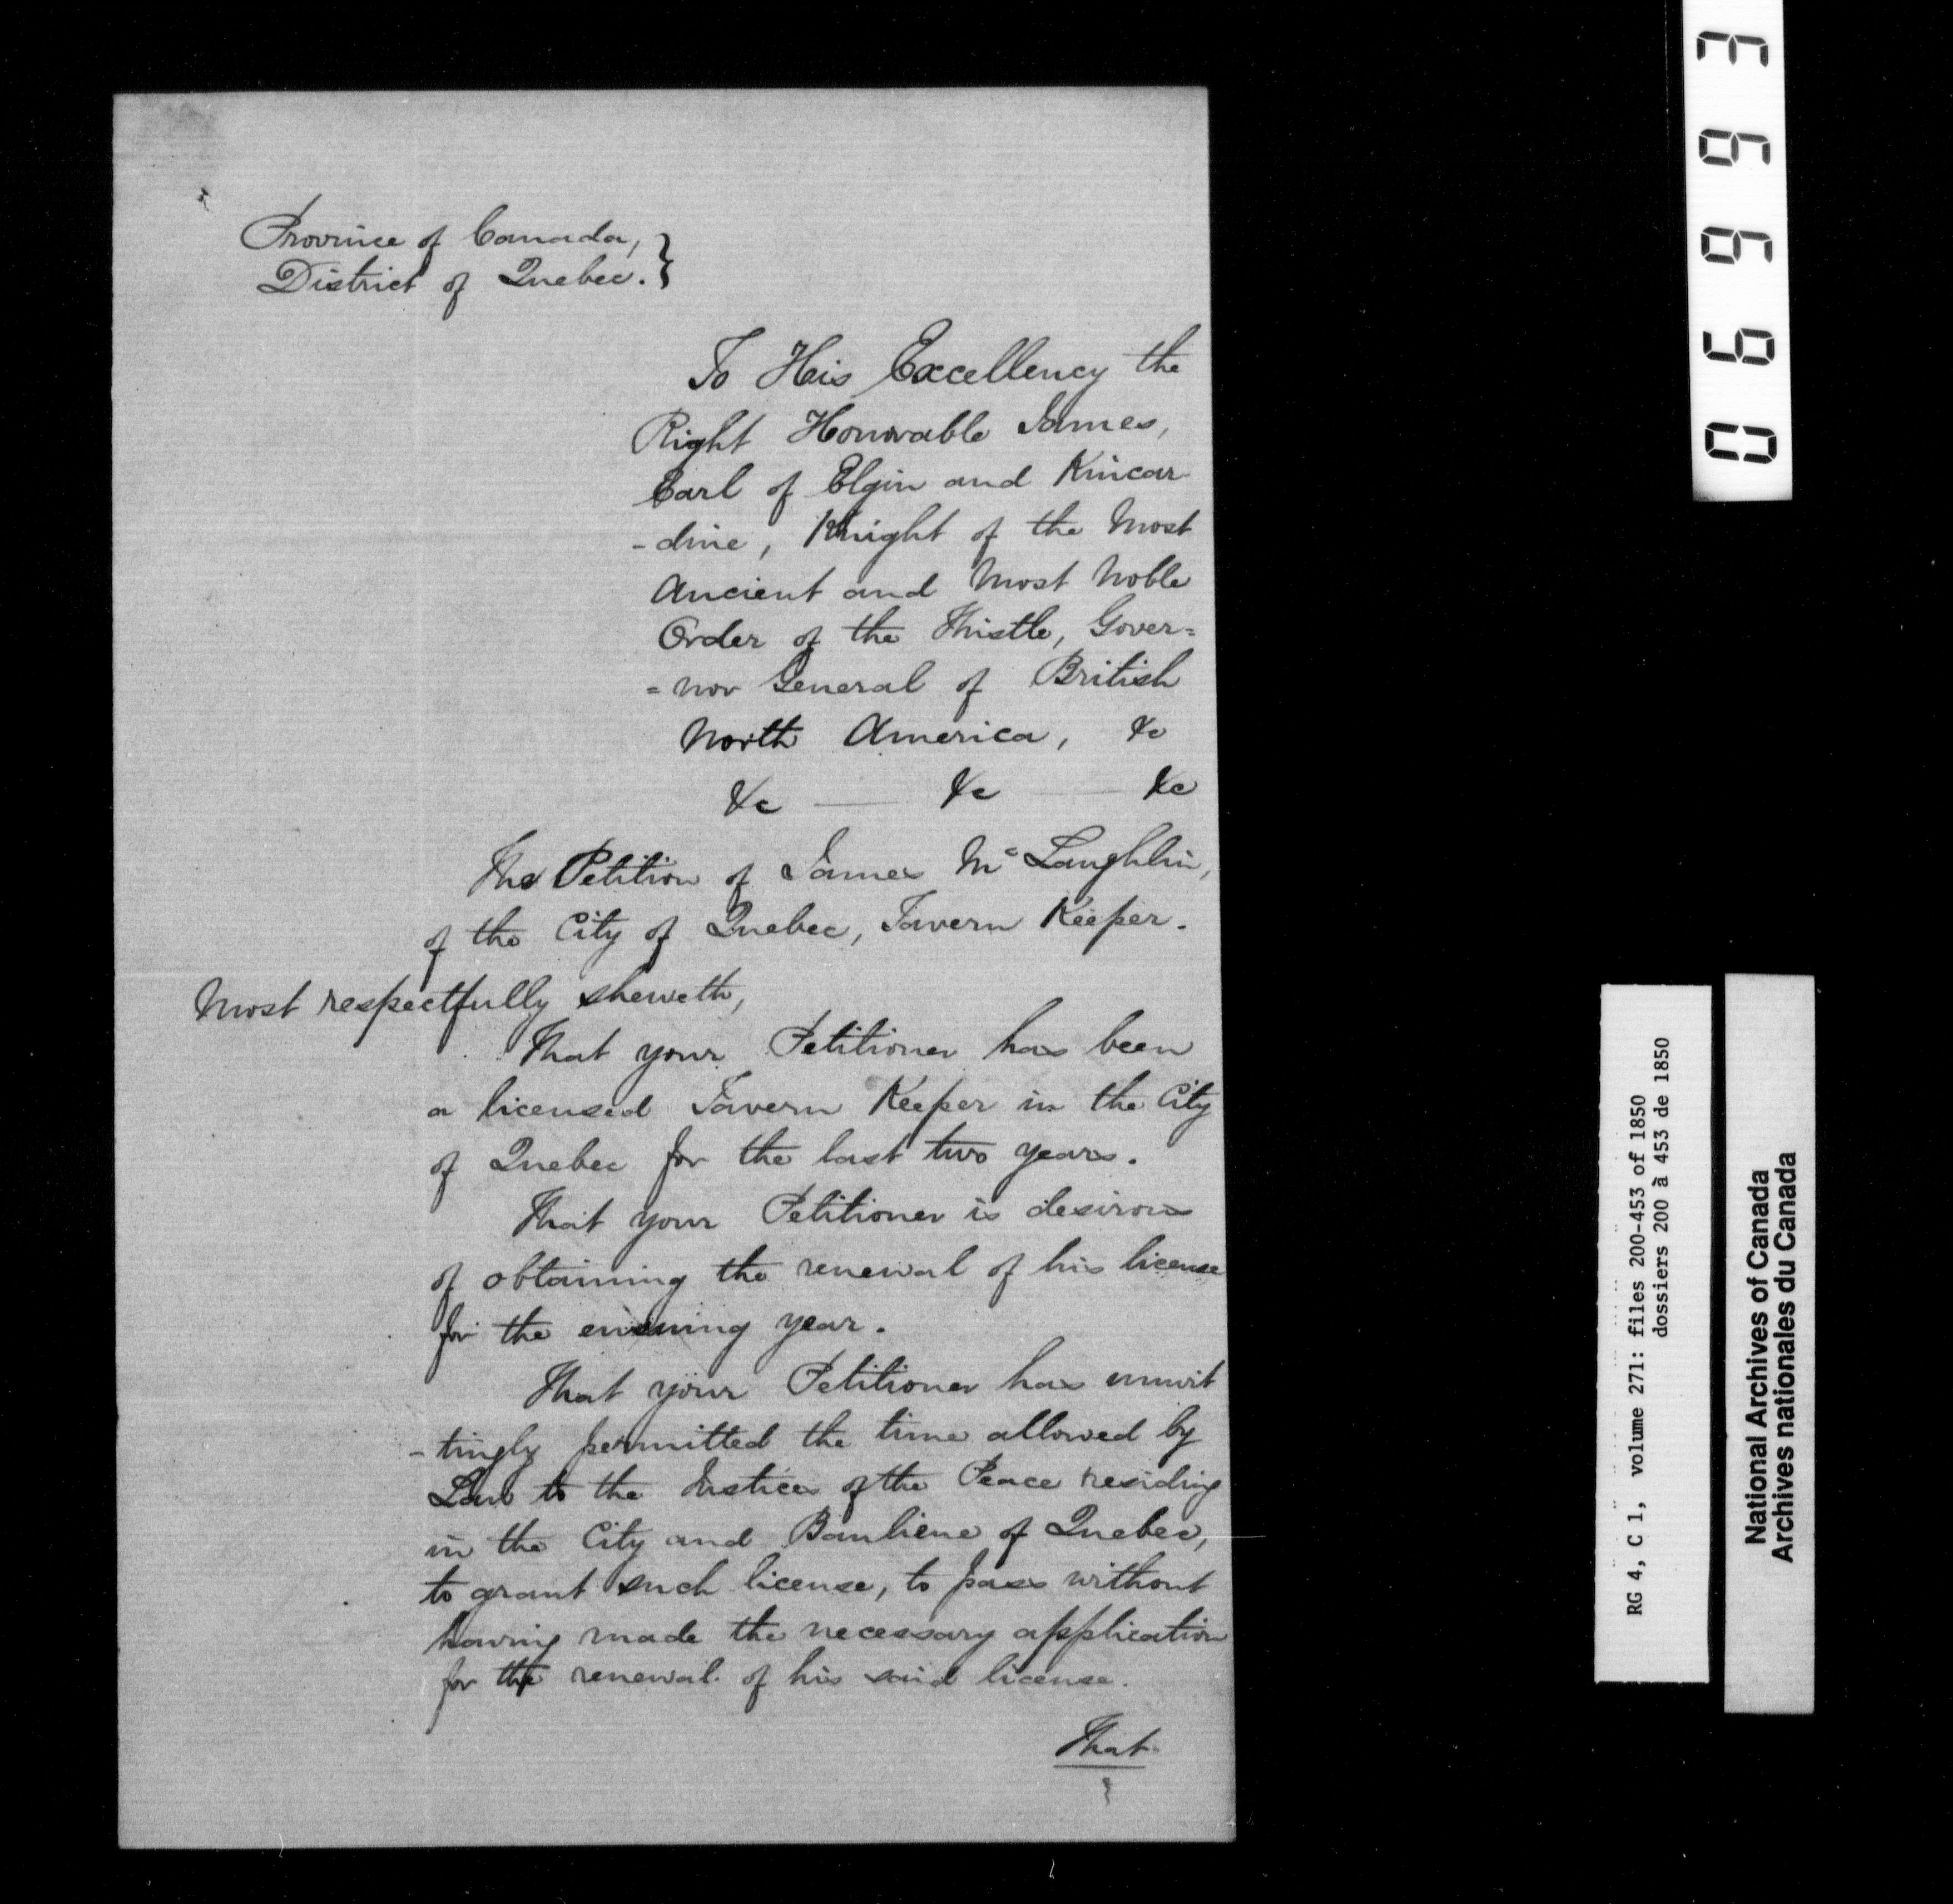 Province of Canada,
District of Quebec. }
To His Excellency the
Right Honorable James,
Earl of Elgin and Kincar
-dine, Knight of the Most
Ancient and Most Noble
Order of the Thistle, Gover=
=nor General of British
North America, &c
&c — &c — &c
The Petition of James McLaughlin,
of the City of Quebec, Tavern Keeper.
Most respectfully sheweth,
That your Petitioner has been
a licensed Tavern Keeper in the City
of Quebec for the last two years.
That your Petitioner is desirous
of obtaining the renewal of his license
for the ensuing year.
That your Petitioner has unwit
-tingly permitted the time allowed by
Law to the Justices of the Peace residing
in the City and Banliene of Quebec,
to grant such license, to pass without
having made the necessary application
for the renewal of his said license.
That
06993
RG 4, C 1, volume 271: files 200-453 of 1850
dossiers 200 à 453 de 1850
National Archives of Canada
Archives nationales du Canada